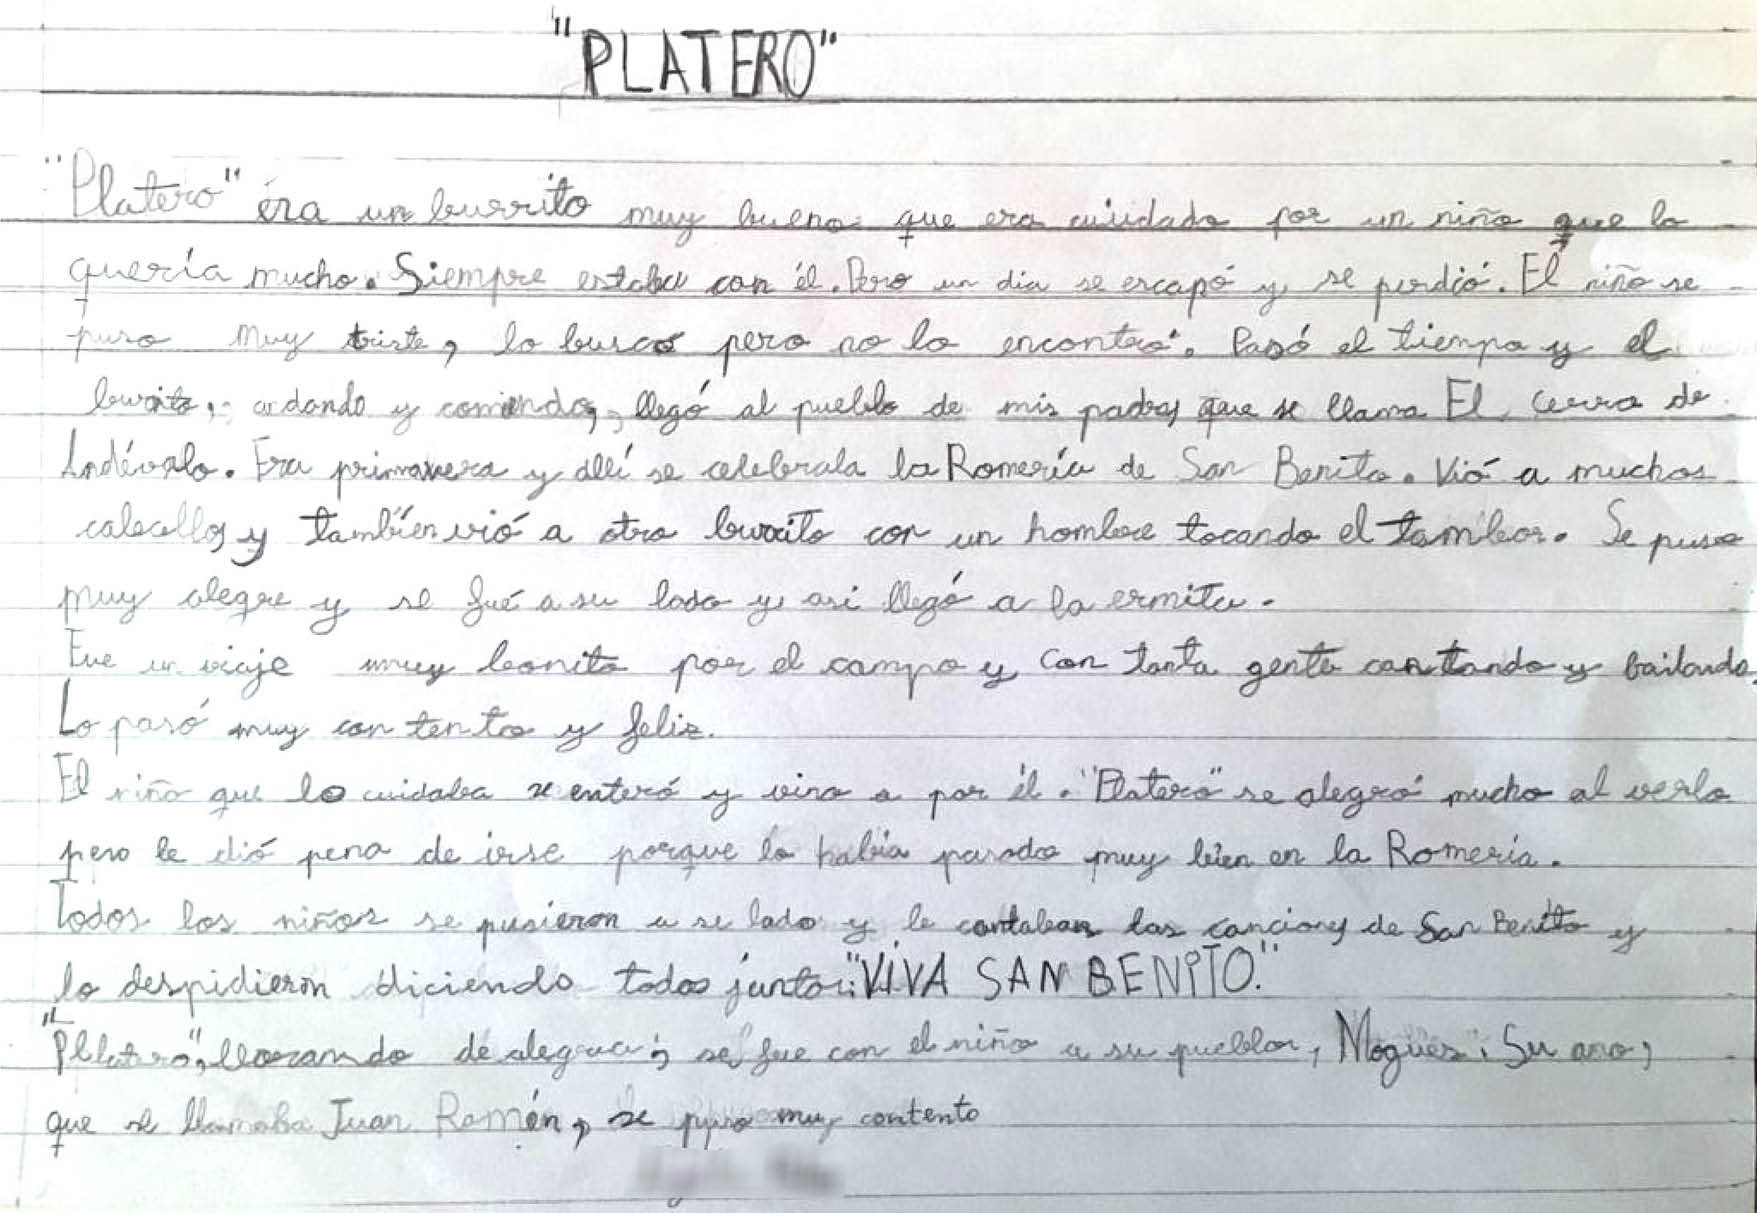 "PLATERO"
"Platero" éra un burrito muy bueno que era cuidado por un niño que lo
quería mucho. Siempre estaba con él. Pero un día se escapó y se perdió. El niño se
puso muy triste, lo buscó pero no lo encontró. Pasó el tiempo y el
burrito, andando y comiendo, llegó al pueblo de mis padres que se llama El Cerro de
Andévalo. Era primavera y allí se celebraba la Romería de San Benito. Vió a muchos
caballos y también vió a otro burrito con un hombre tocando el tambor. Se puso
muy alegre y se fué a su lado y así llegó a la ermita.
Fue un viaje muy bonito por el campo y con tanta gente cantando y bailando.
Lo pasó muy contento y feliz.
El niño que lo cuidaba se enteró y vino a por él. "Platero" se alegró mucho al verlo
pero le dió pena de irse porque lo había pasado muy bien en la Romería.
Todos los niños se pusieron a se lado y le cantaban las canciones de San Benito y
lo despidieron diciendo todos juntos: "VIVA SAN BENITO."
"Platero", llorando de alegría, se fue con el niño a su pueblo, Moguer. Su amo,
que se llamaba Juan Ramón, se puso muy contento